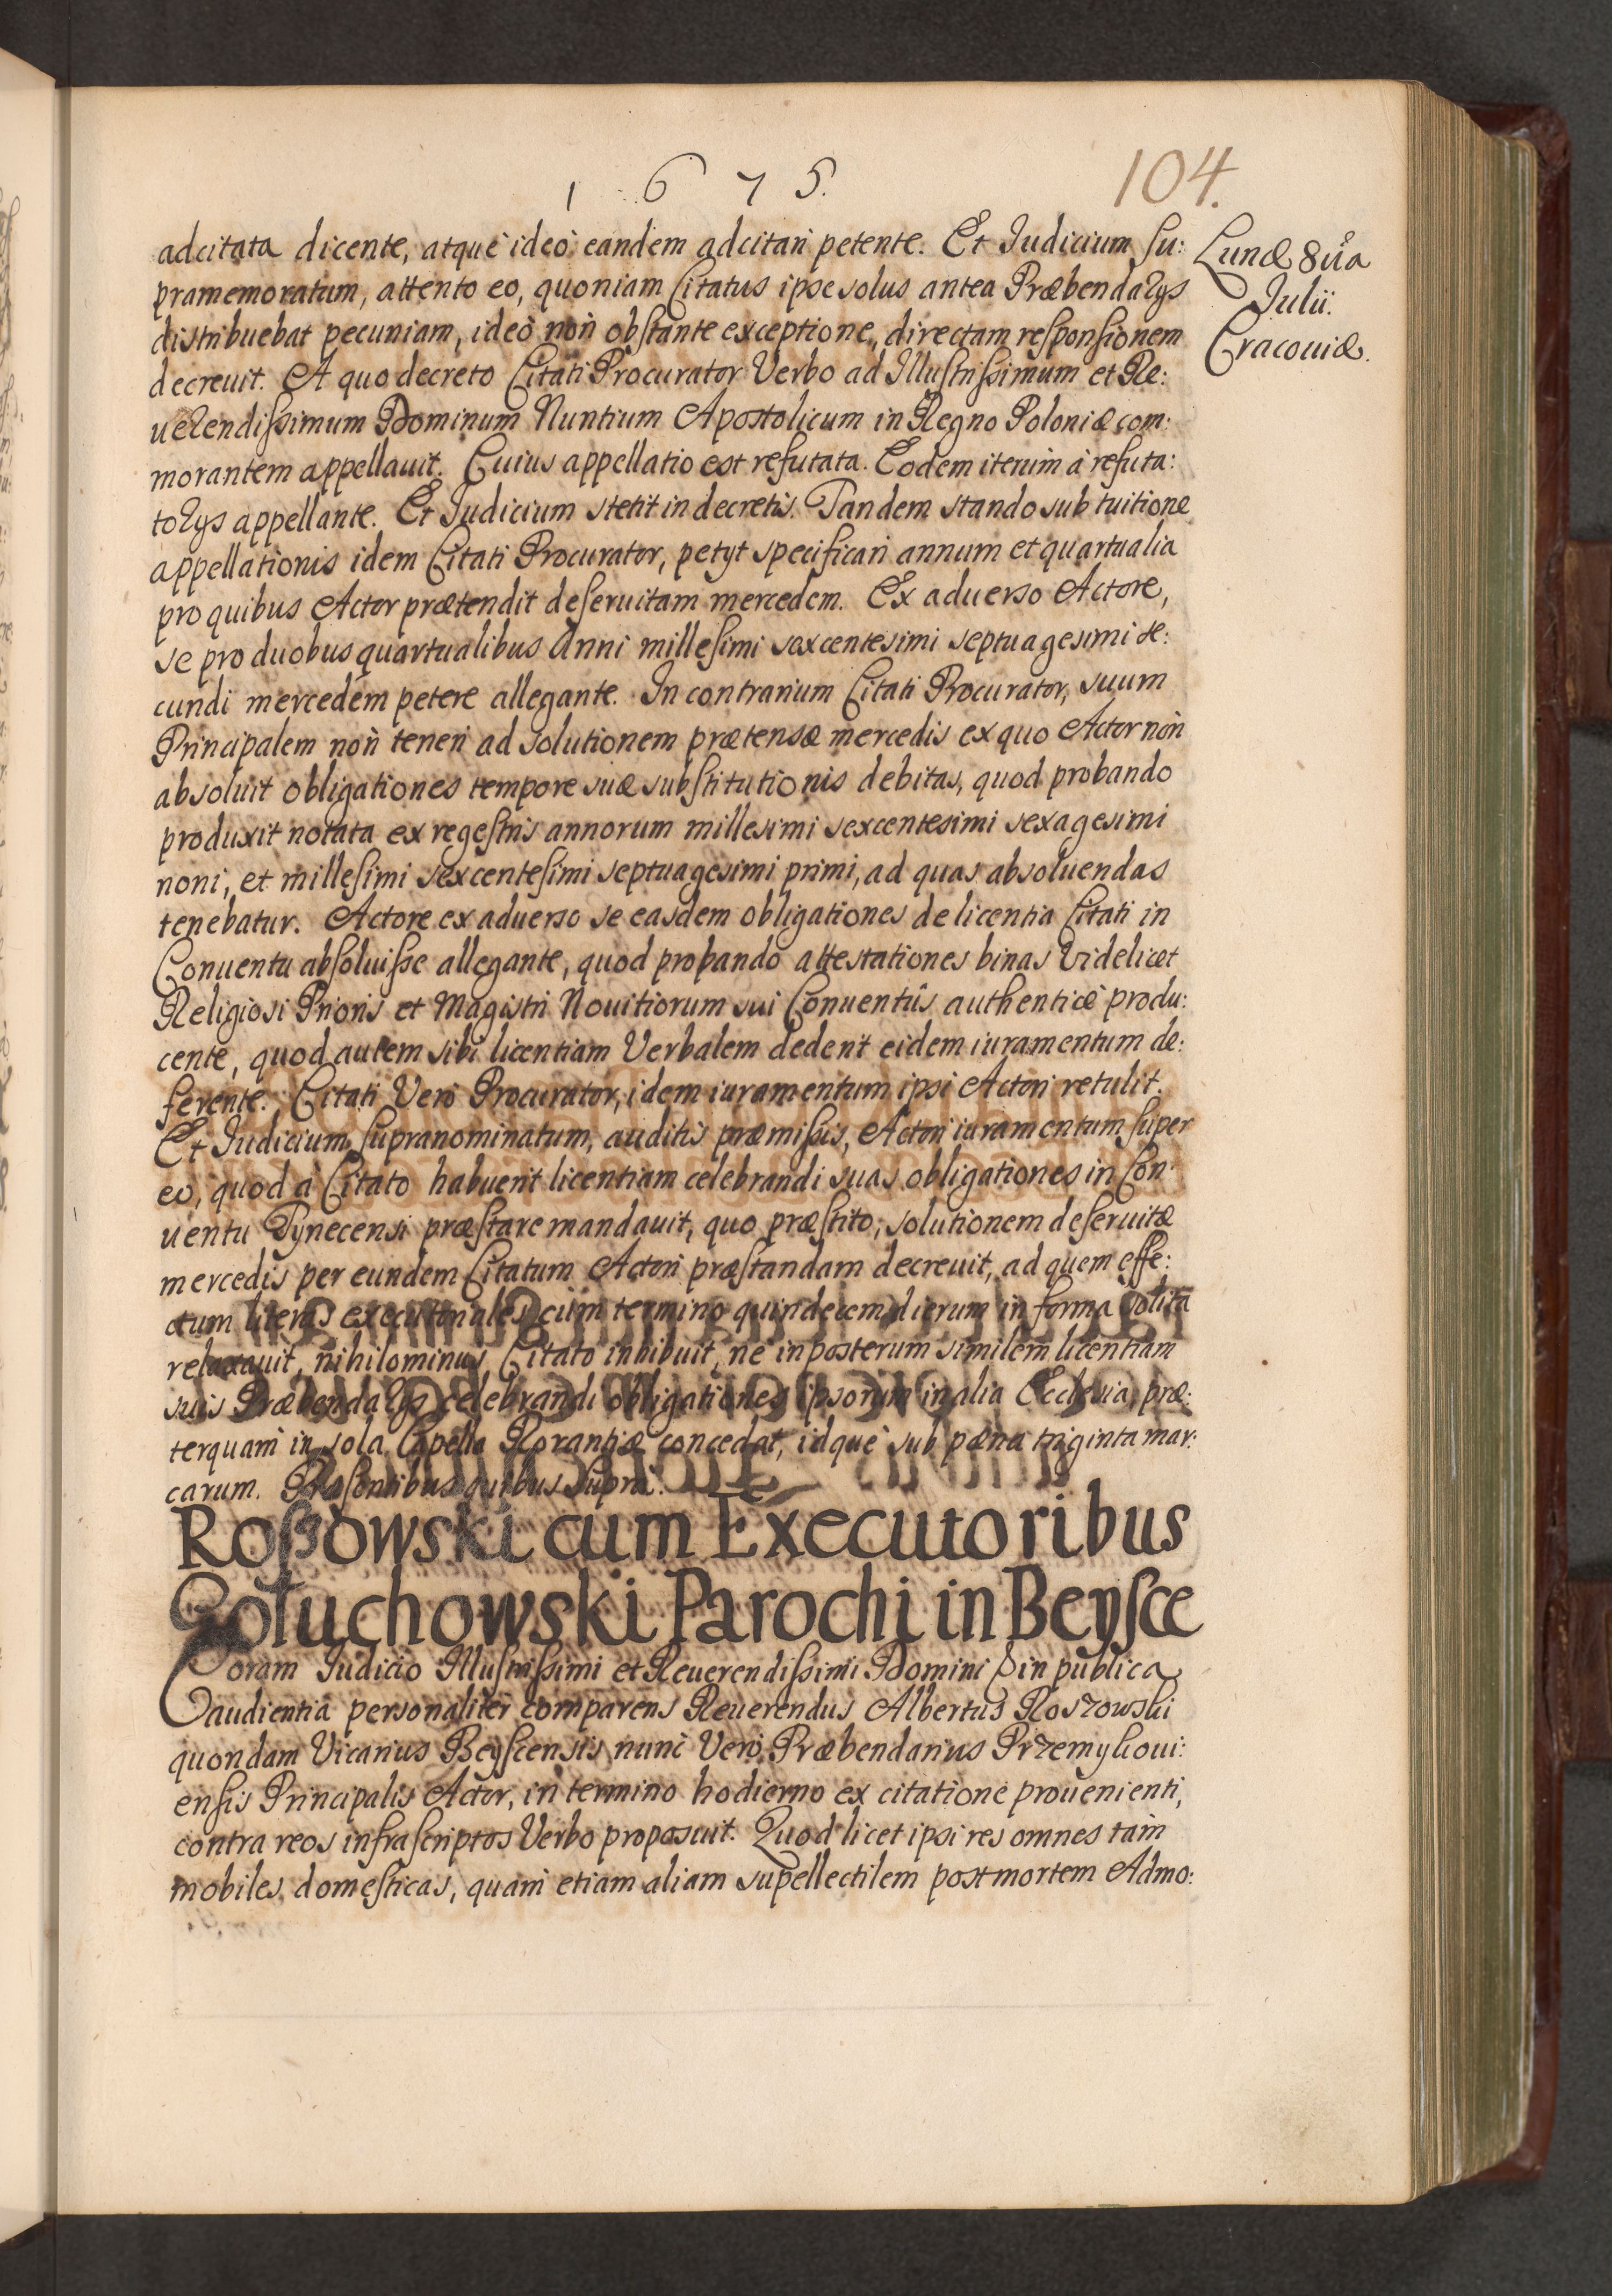 1675.
104.
adcitata dicente, atquè ideò eandem adcitari petente. Et Iudicium su:
pramemoratum, attento eo, quoniam Citatus ipse solus antea Præbendarys
distribuebat pecuniam, ideò non obstante exceptione, directam responsionem
decreuit. A quo decreto Citati Procurator Verbo ad Illustrissimum et Re:
uerendissimum Dominum Nuntium Apostolicum in Regno Poloniæ com:
morantem appellauit. Cuius appellatio est refutata. Eodem iterum à refuta:
torys appellante. Et Iudicium stetit in decretis. Tandem stando sub tuitione
appellationis idem Citati Procurator, petyt specificari annum et quartualia
pro quibus Actor prætendit deseruitam mercedem. Ex aduerso Actore,
se pro duobus quartualibus Anni millesimi sexcentesimi septuagesimi se:
cundi mercedem petere allegante. In contrarium Citati Procurator, suum
Principalem non teneri ad solutionem prætensæ mercedis ex quo Actor non
absoluit obligationes tempore suæ substitutionis debitas, quod probando
produxit notata ex regestris annorum millesimi sexcentesimi sexagesimi
noni, et millesimi sexcentesimi septuagesimi primi, ad quas absoluendas
tenebatur. Actore ex aduerso se easdem obligationes de licentia Citati in
Conuentu absoluisse allegante, quod probando attestationes binas Videlicet
Religiosi Prioris et Magistri Nouitiorum sui Conuentûs authenticè produ:
cente, quod autem sibi licentiam Verbalem dederit eidem iuramentum de:
ferente. Citati Verò Procurator, idem iuramentum ipsi Actori retulit.
Et Iudicium supranominatum, auditis præmissis, Actori iuramentum super
eo, quod à Citato habuerit licentiam celebrandi suas obligationes in Con
uentu Tynecensi præstare mandauit, quo præstito, solutionem deseruitæ
mercedis per eundem Citatum Actori præstandam decreuit, ad quem effe:
ctum literas executoriales cùm termino quindecem dierum in forma solita
relaxauit, nihilominus Citato inhibuit, ne inposterum similem licentiam
suis Præbendarys celebrandi obligationes ipsorum in alia Ecclesia, præ:
terquam in sola Capella Rorantiæ concedat, idquè sub pæna triginta mar:
carum. Præsentibus quibus supra.
Roßowski cum Executoribus
Gołuchowski Parochi in Beysce
Coram Iudicio Illustrissimi et Reuerendissimi Domini in publica
audientia personaliter comparens Reuerendus Albertus Roszowski
quondam Vicarius Beyscensis nunc Verò Præbendarius Przemykoui:
ensis Principalis Actor, in termino hodierno ex citatione prouenienti,
contra reos infrascriptos Verbo proposuit. Quod licet ipsi res omnes tam
mobiles domesticas, quam etiam aliam supellectilem post mortem Admo:
Lunæ 8ua
Julii.
Cracouiæ.